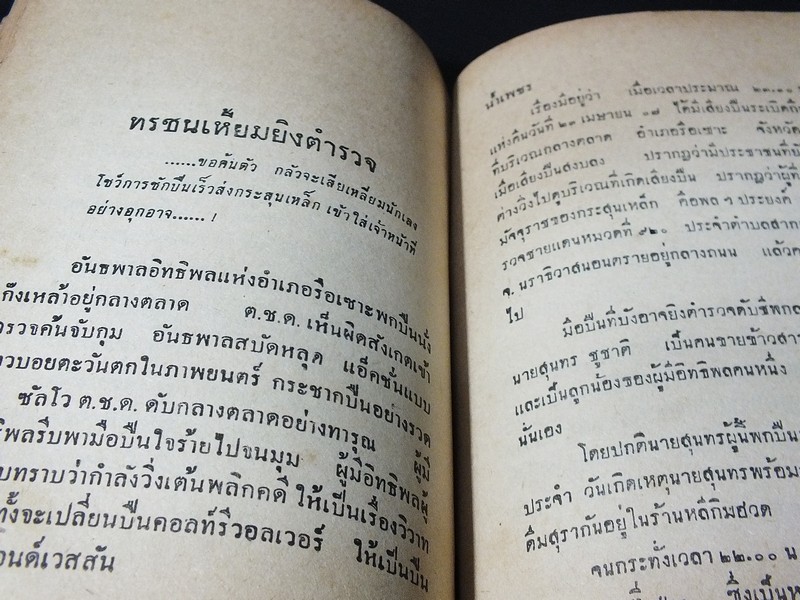 ทรชนเหี้ยมยิงตำรวจ
......ขอค้นตัว กลัวจะเสียเหลี่ยมนักเลง
โชว์การชักปืนเร็วส่งกระสุนเหล็ก เข้าใส่เจ้าหน้าที่
อย่างอุกอาจ...... !
อันธพาลอิทธิพลแห่งอำเภอรือเซาะพกปืนนั่ง
ก๊งเหล้าอยู่กลางตลาด ต.ช.ด. เห็นผิดสังเกตเข้า
ค้นจับกุม อันธพาลสบัดหลุด แอ็คชั่นแบบ
บอยตะวันตกในภาพยนตร์ กระชากปืนอย่างรวด
ซัลโว ต.ช.ด. ดับกลางตลาดอย่างทารุณ ผู้มี
รีบพามือปืนใจร้ายไปจนมุม ผู้มีอิทธิพลผู้
ทราบว่ากำลังวิ่งเต้นพลิกคดี ให้เป็นเรื่องวิวาท
ทั้งจะเปลี่ยนปืนคอลท์รีวอลเวอร์ ให้เป็นปืน
เวสสัน
นั้นเพชร
เรื่องมีอยู่ว่า เมื่อเวลาประมาณ ๒๓.๐๐
แห่งคืนวันที่ ๒๓ เมษายน ๑๗ ได้มีเสียงปืนระเบิดกึก
ที่บริเวณกลางตลาด อำเภอรือเซาะ จังหวัด
เมื่อเสียงปืนสงบลง ปรากฏว่ามีประชาชนที่
ต่างวิ่งไปดูบริเวณที่เกิดเสียงปืน ปรากฏว่าผู้ที่
มัจจุราชของกระสุนเหล็ก คือพล ฯ ประยงค์
รวจชายแดนหมวดที่ ๙๒๐ ประจำตำบลสาก
จ. นราธิวาสนอนตรายอยู่กลางถนน แล้ว
ไป
มือปืนที่บังอาจยิงตำรวจดับชีพ
นายสุนทร ชูชาติ เป็นคนขายข้าวสาร
และเป็นลูกน้องของผู้มีอิทธิพลคนหนึ่ง
นั่นเอง
โดยปกตินายสุนทรผู้นี้พกปืน
ประจำ วันเกิดเหตุนายสุนทรพร้อม
ดื่มสุรากันอยู่ในร้านหลีกิมฮวด
จนกระทั่งเวลา ๒๒.๐๐ น
ซึ่งเป็น